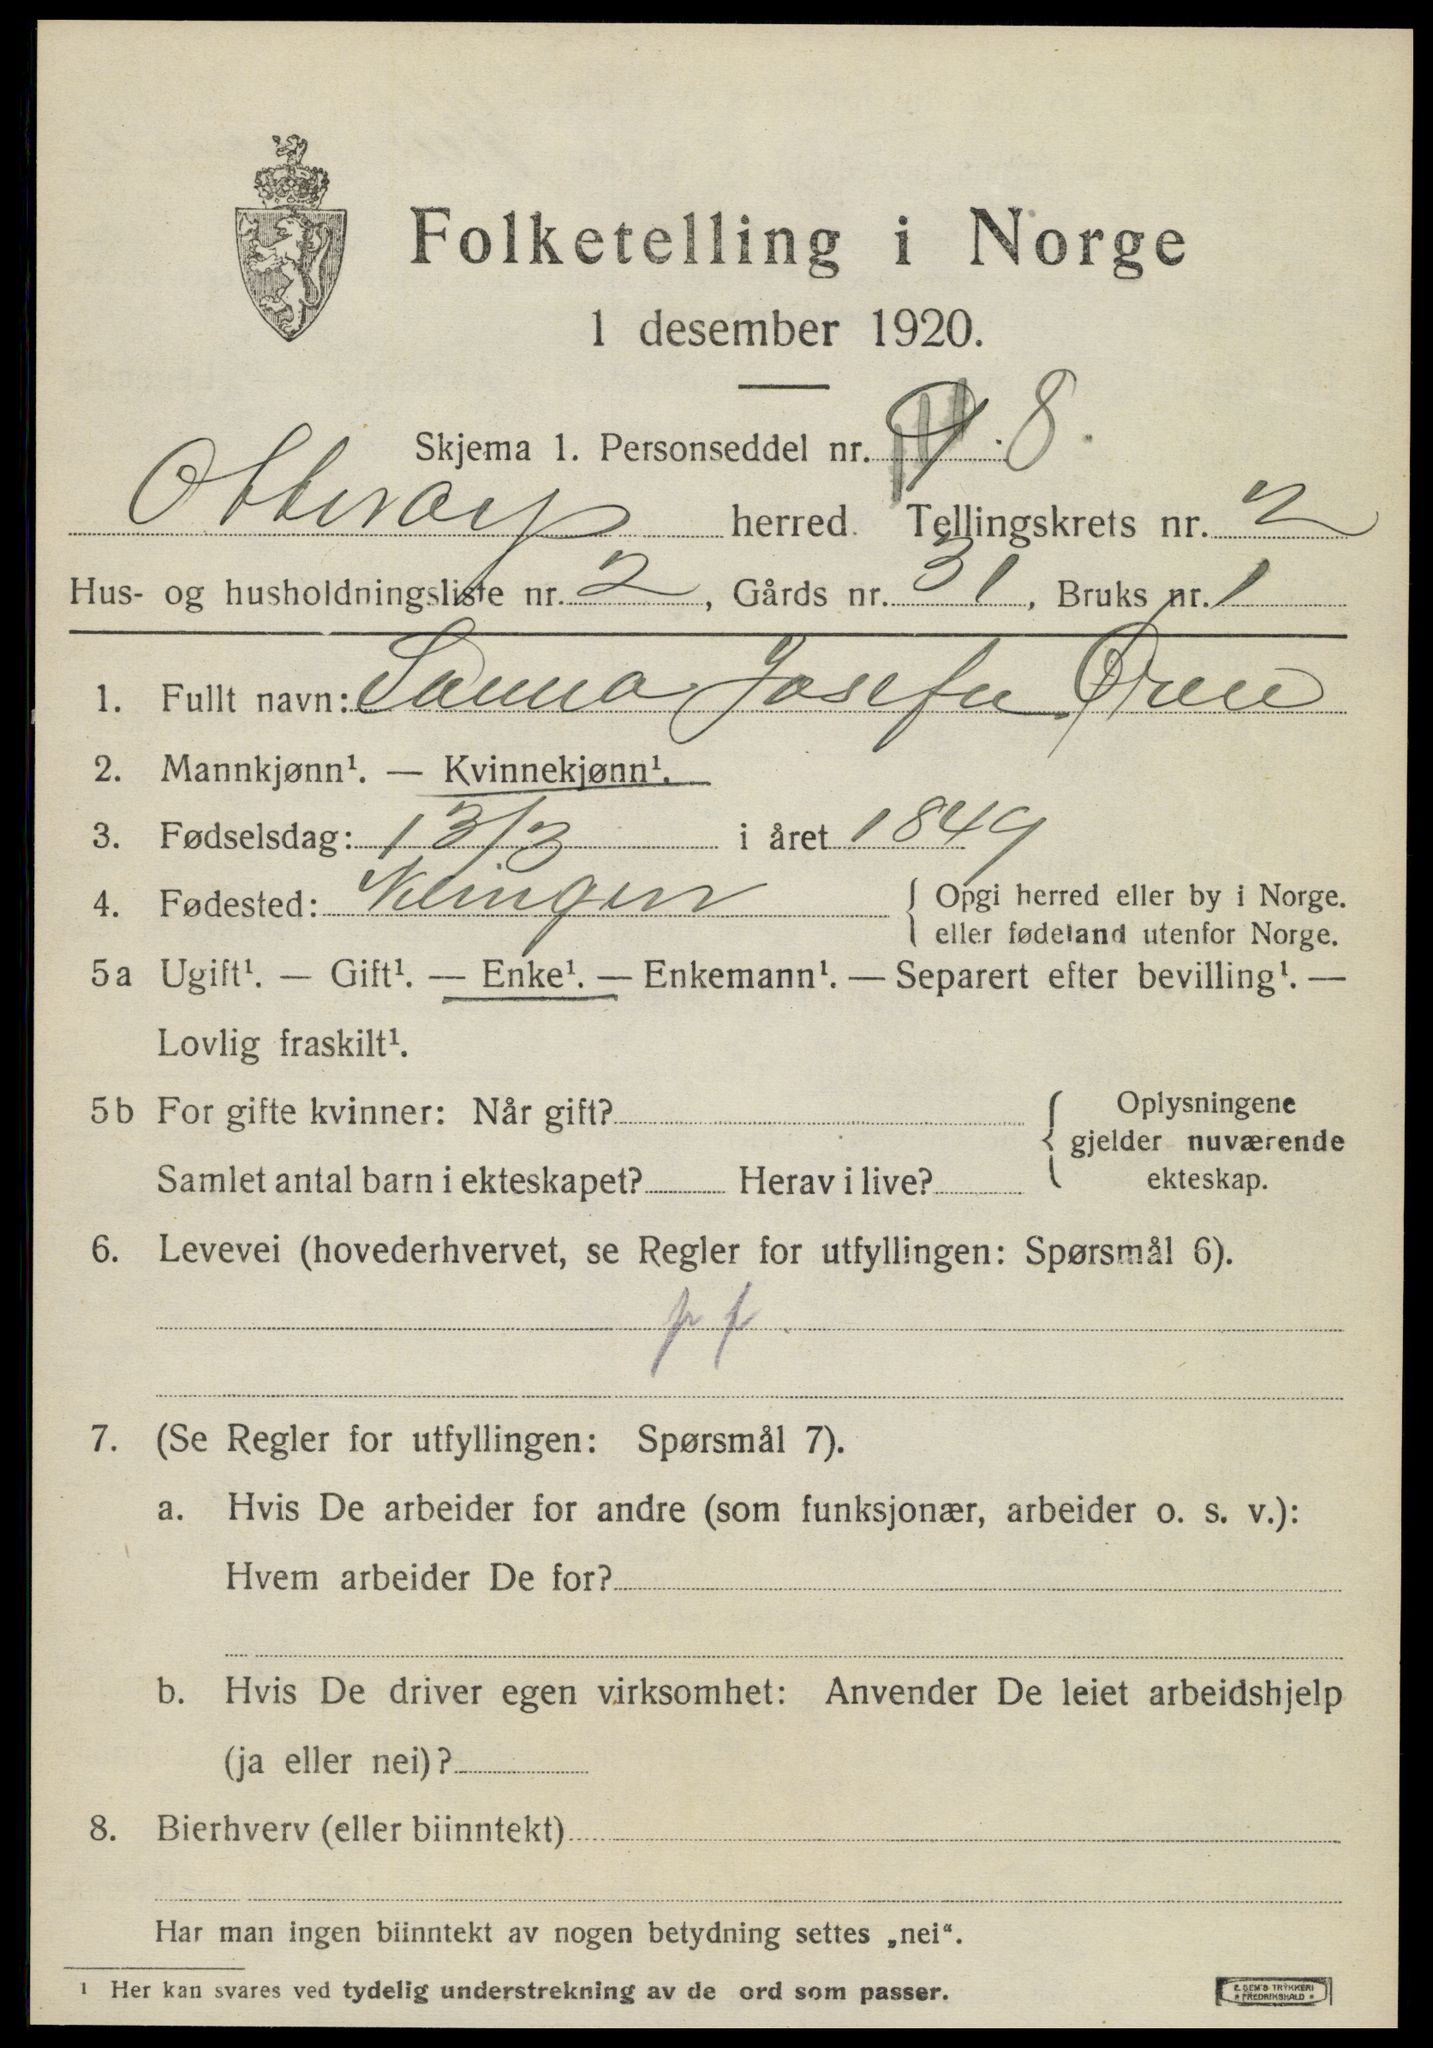 Folketelling i Norge
1 desember 1920.
Skjema 1. Personseddel nr. 8.
Otterøy herred. Tellingskrets nr. 2
Hus- og husholdningsliste nr. 2, Gårds nr. 31, Bruks nr. 1
1. Fullt navn: Sanna Josefa Øren
2. Mannkjønn¹. — Kvinnekjønn¹.
3. Fødselsdag: 13/3 i året 1849
4. Fødested: Klingen { Opgi herred eller by i Norge.
eller fødeland utenfor Norge.
5a Ugift¹. — Gift¹. — Enke¹. — Enkemann¹. — Separert efter bevilling¹. —
Lovlig fraskilt¹.
5b For gifte kvinner: Når gift? { Oplysningene
gjelder nuværende
Samlet antal barn i ekteskapet? Herav i live? ekteskap.
6. Levevei (hovederhvervet, se Regler for utfyllingen: Spørsmål 6).
7. (Se Regler for utfyllingen: Spørsmål 7).
a. Hvis De arbeider for andre (som funksjonær, arbeider o. s. v.):
Hvem arbeider De for?
b. Hvis De driver egen virksomhet: Anvender De leiet arbeidshjelp
(ja eller nei)?
8. Bierhverv (eller biinntekt)
Har man ingen biinntekt av nogen betydning settes „nei“.
¹ Her kan svares ved tydelig understrekning av de ord som passer.
E. SEM'S TRYKKERI
* FREDRIKSHALD *